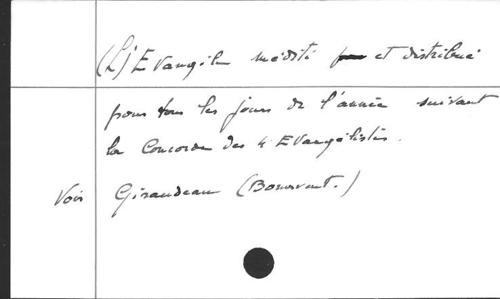 (L')Evangile médité et distribué
pour tous les jours de l'année suivant
la Concorde des 4 Evangélistes.
Voir Giraudeau (Bonavent.)